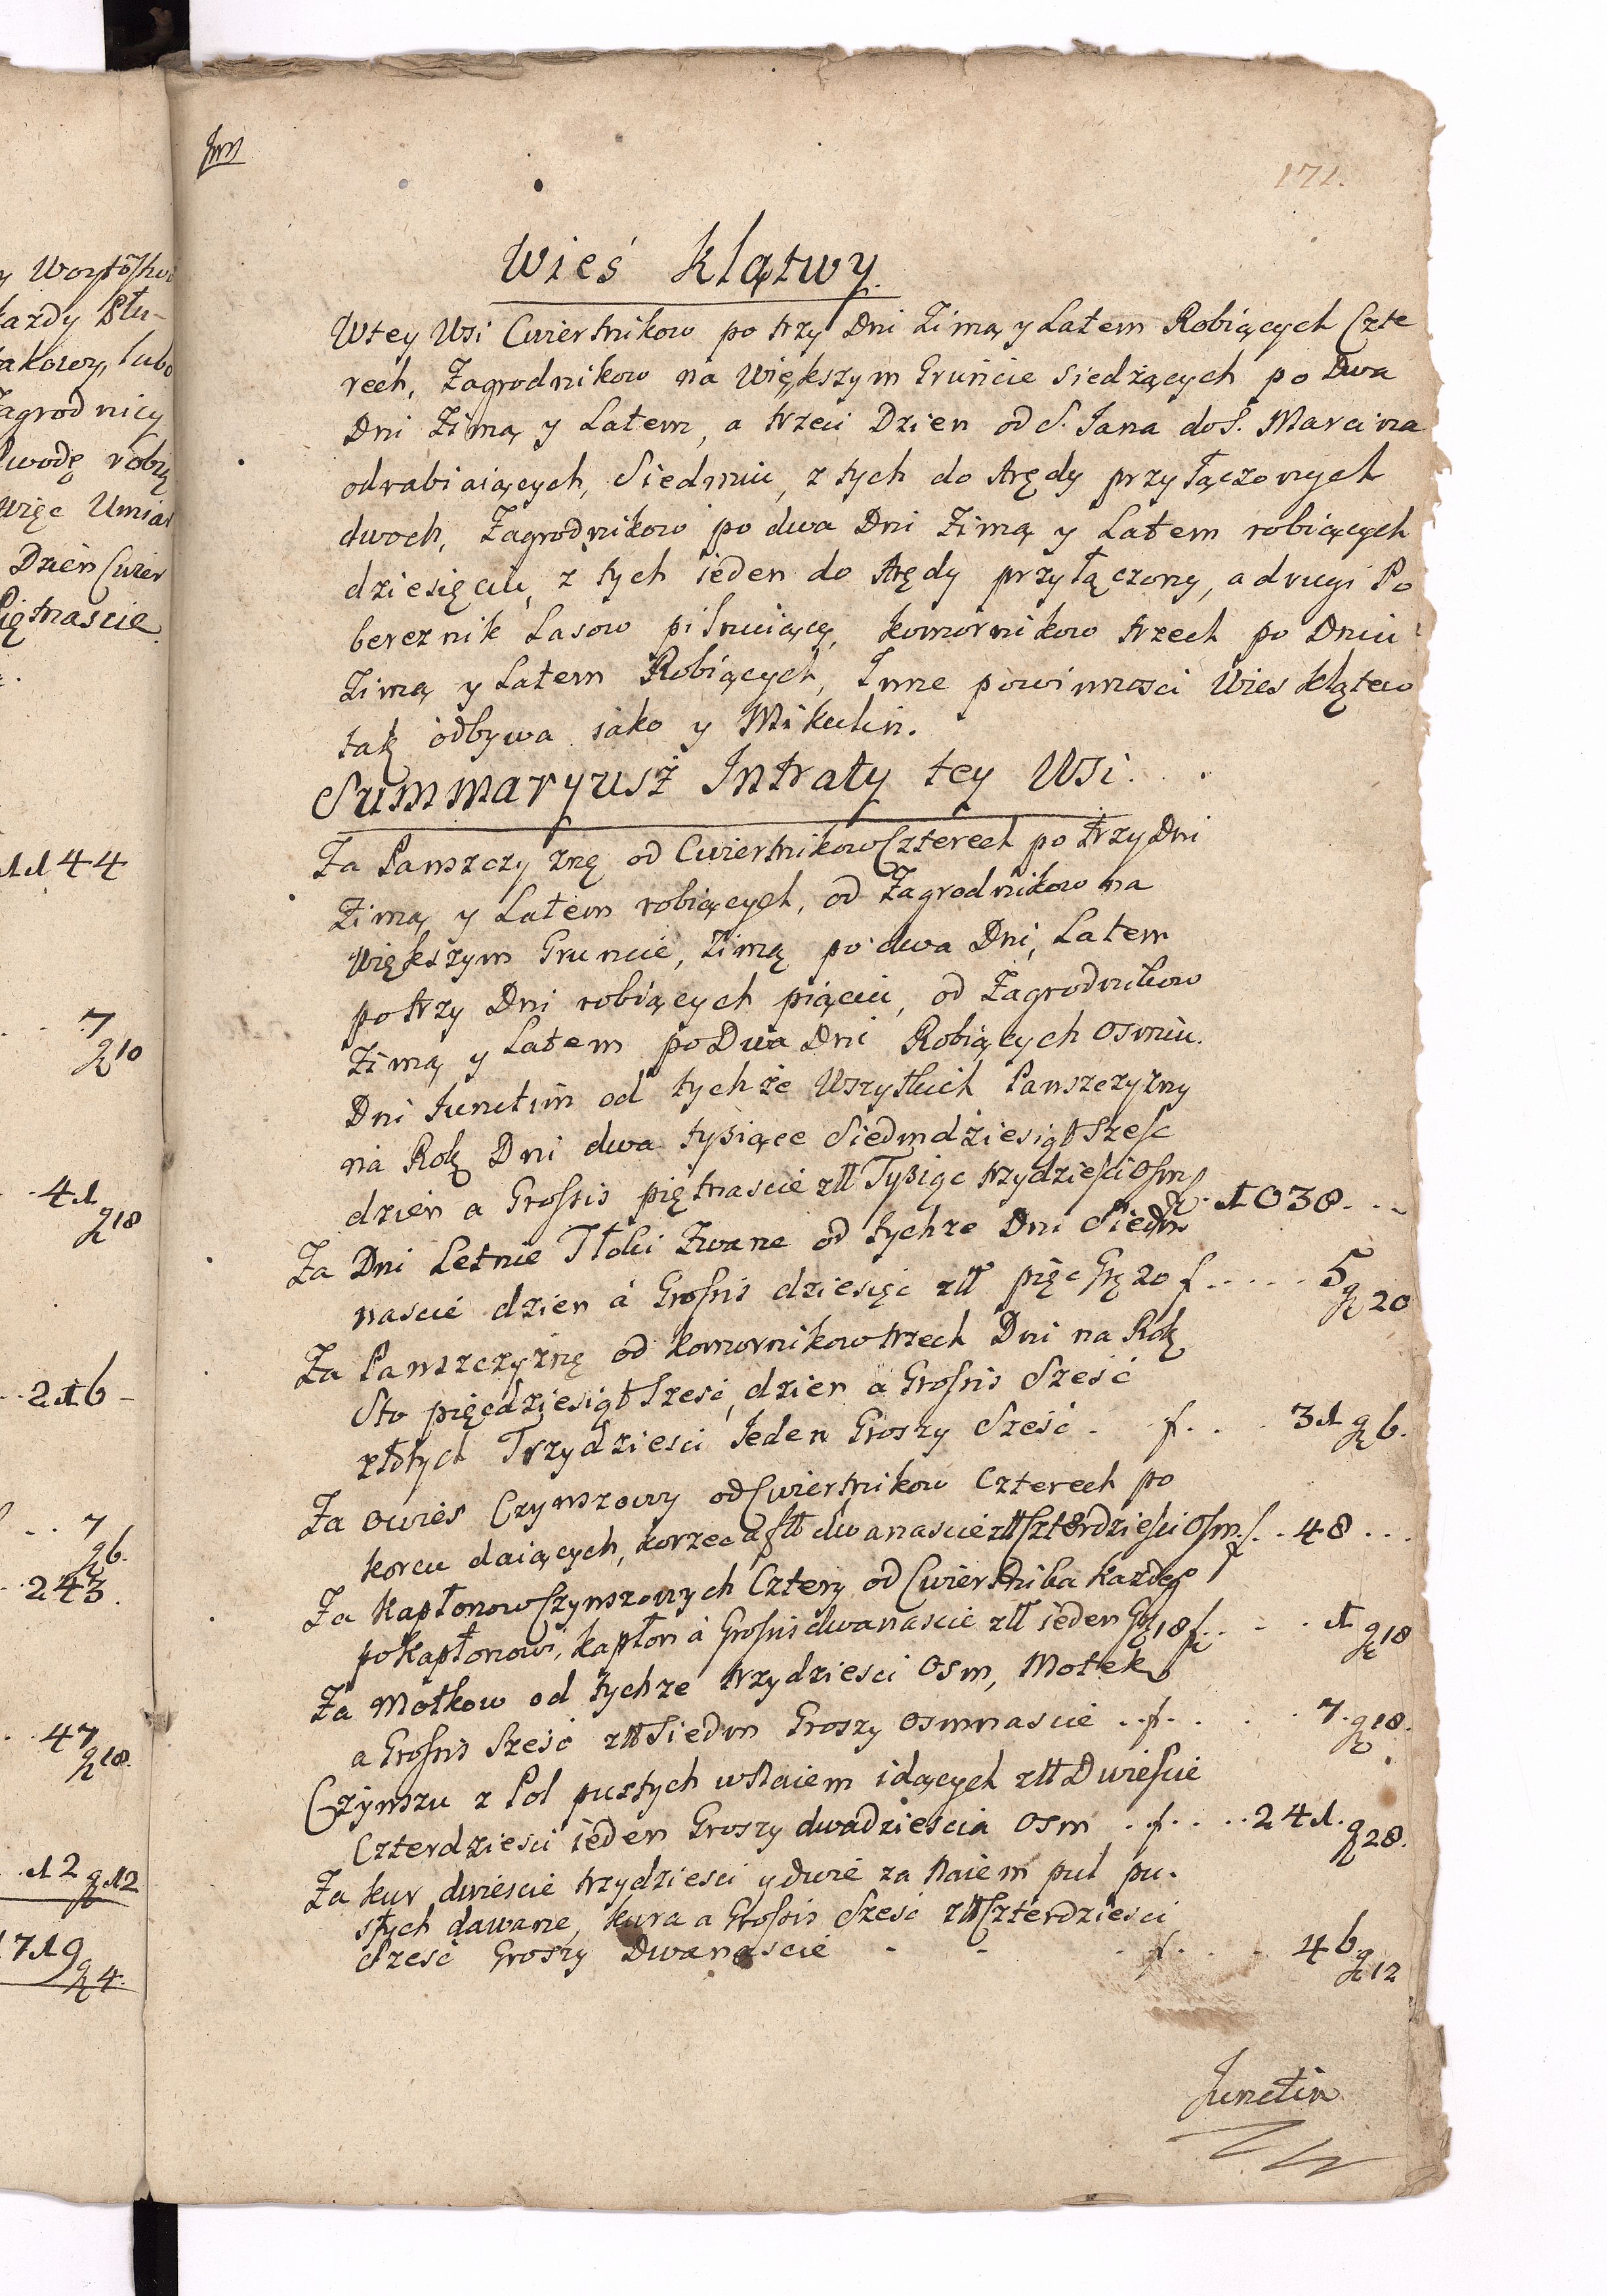 171.
Wieś Klątwy.
Wtey Wsi Cwiertnikow po trzy Dni Zimą y Latem Robiących Czte
rech, Zagrodnikow na Większym Gruncie Siedzących po Dwa
Dni Zimą y Latem, a trzeci Dzien od S. Jana do S. Marcina
odrabiaiących, Siedmiu, z tych do Arędy przyłączonych
dwoch, Zagrodnikow po dwa Dni Zimą y Latem robiących
dziesięciu, z tych ieden do Arędy przyłączony, a drugi Po
bereznik Lasow pilnuiący, komornikow trzech po Dniu
Zimą y Latem Robiących, Inne powinnosci Wies Klątew
tak odbywa iako y Mikulin.
Summaryusz Intraty tey Wsi.
Za Panszczyznę od Cwiertnikow Czterech po trzy Dni
Zimą y Latem robiących, od Zagrodnikow na
Większym Gruncie, Zimą po dwa Dni, Latem
po trzy Dni robiących piąciu, od Zagrodnikow
Zimą y Latem po Dwa Dni Robiących Osmiu.
Dni Iunctim od tychże Wszytkich Panszczyzny
na Rok Dni dwa tysiące Siedmdziesiąt Szesc
dzien a Grossis piętnascie złł Tysiąc trzydziesci Osm f. 1038...
Za Dni Letnie Tłoki Zwane od tychze Dni Siedm
nascie dzien á Grossis dziesięć złł pięc Gr 20 f..... 5 gr 20
Za Panszczyznę od komornikow trzech Dni na Rok
Sto pięcdziesiąt Szesć, dzien a Grossis Szesć
złotych Trzydziesci Ieden Groszy Szesć . f... 31 gr 6.
Za owies Czynszowy od Cwiertnikow Czterech po
korcu daiących, korzec a fłł dwanascie złł Czterdziesci Osm. f.. 48...
Za Kapłonow Czynszowych Cztery od Cwiertnika Kazdego
po Kapłonowi, kapłon á Grossis dwanascie złł ieden Gr 18 f.... 1 gr 18
Za Motkow od tychze trzydziesci Osm, Motek
a Grossis Szesć złł Siedm Groszy osmnascie .. f.... 7. gr 18.
Czynszu z Pol pustych w Naiem idących złł Dwiescie
Czterdziesci ieden Groszy dwadziescia Osm . f.... 241. gr 28.
Za kur dwiescie trzydziesci y dwie za Naiem pul pu-
stych dawane, kura a Grossis Szesć złł Czterdziesci
Szesć Groszy Dwanascie - - - f... 46 gr 12
Iunctim